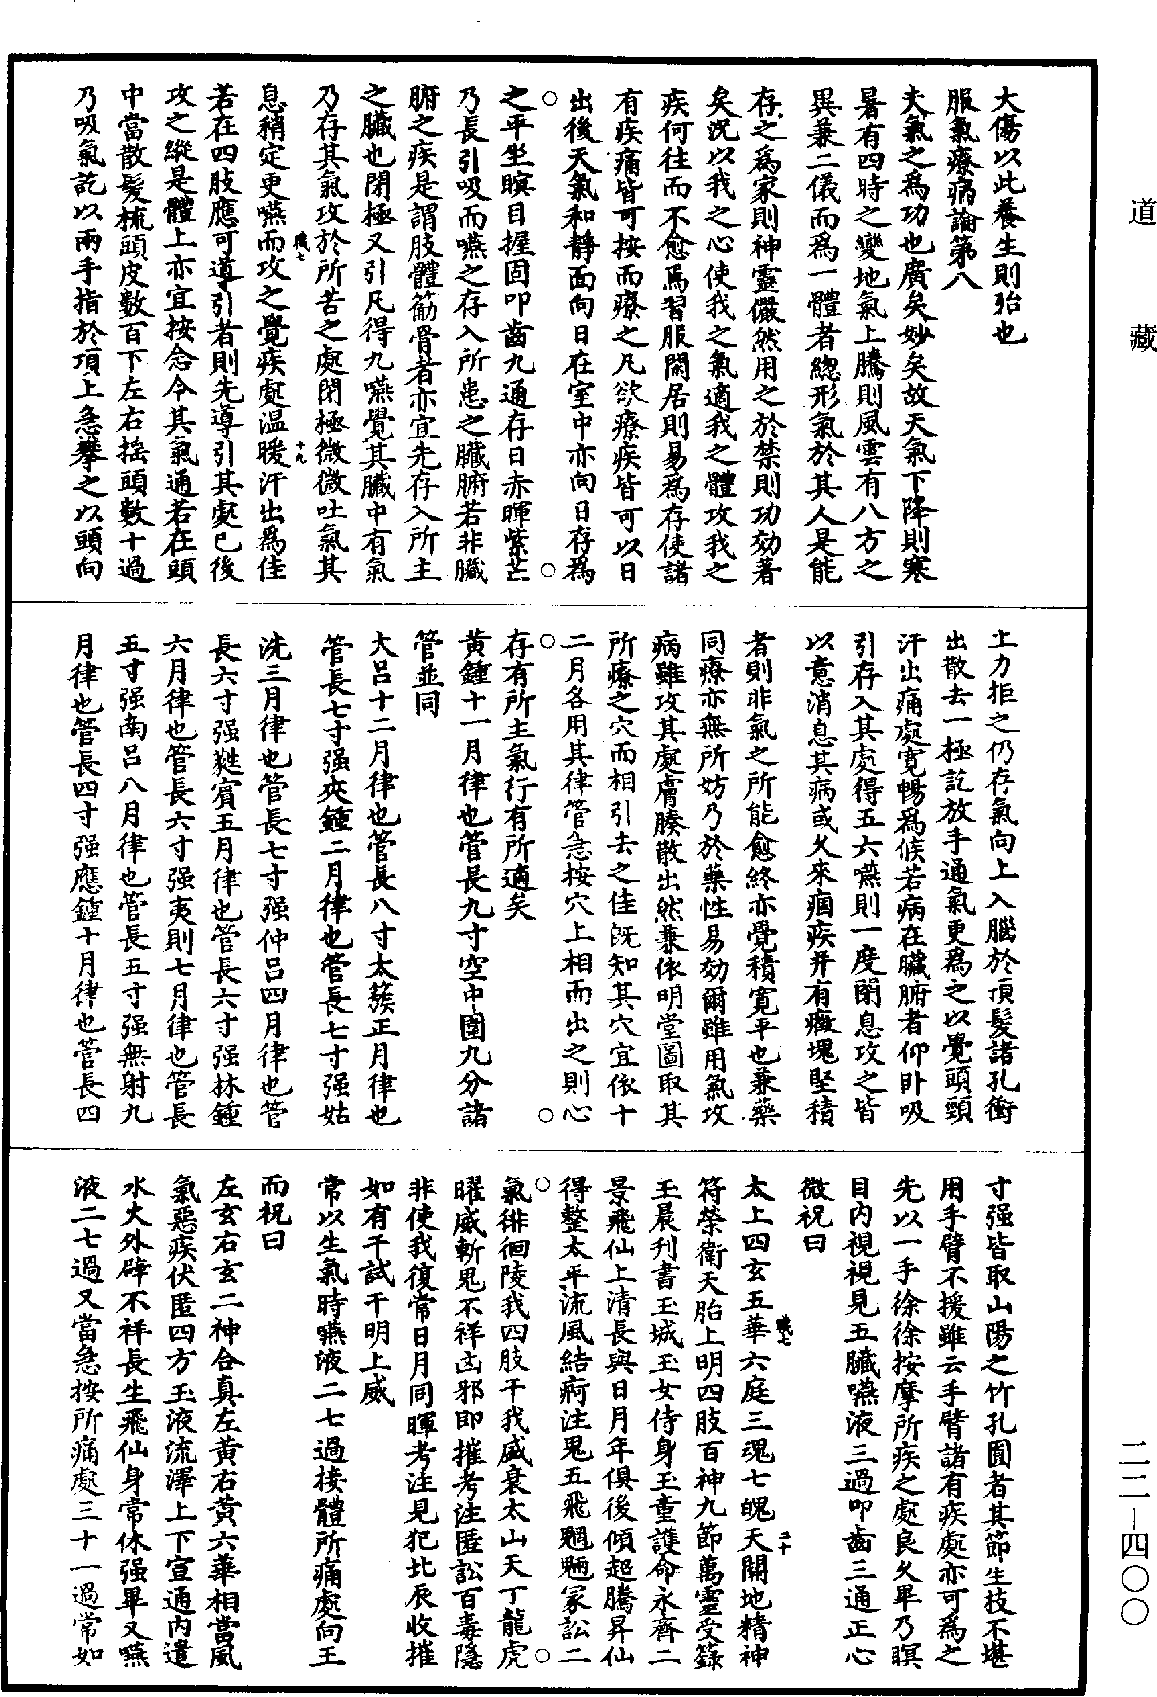 道藏
大傷以此養生則殆也
服氣療病論第八
夫氣之為功也廣矣妙矣故天氣下降則寒
暑有四時之變地氣上騰則風雲有八方之
異兼二儀而為一體者總形氣於其人是能
存之為家則神靈儼然用之於禁則功効著
矣況以我之心使我之氣適我之體攻我之
疾何往而不愈焉習服閑居則易為存使諸
有疾痛皆可按而療之凡欲療疾皆可以日
出後天氣和靜面向日在室中亦向日存為
之平坐瞑目握固叩齒九通存日赤暉紫芒
乃長引吸而嚥之存入所患之臟腑若非臟
腑之疾是謂肢體筋骨者亦宜先存入所主
之臟也閉極又引凡得九嚥覺其臟中有氣
乃存其氣攻於所苦之處閉極微微吐氣其
職七 十九
息稍定更嚥而攻之覺疾處温暖汗出為佳
若在四肢應可導引者則先導引其處已後
攻之縱是體上亦宜按念令其氣通若在頭
中當散髮梳頭皮數百下左右搖頭數十過
乃吸氣訖以兩手指於項上急攀之以頭向
上力拒之仍存氣向上入腦於頂髮諸孔衝
出散去一極訖放手通氣更為之以覺頭頸
汗出痛處寬暢為候若病在臟腑者仰卧吸
引存入其處得五六嚥則一度閉息攻之皆
以意消息其病或久來痼疾并有癥塊堅積
者則非氣之所能愈終亦覺積寬平也兼藥
同療亦無所妨乃於藥性易効爾雖用氣攻
病雖攻其處膚腠散出然兼依明堂圖取其
所療之穴而相引去之佳既知其穴宜依十
二月各用其律管急按穴上相而出之則心
存有所主氣行有所適矣
黄鍾十一月律也管長九寸空中圍九分諸
管並同
大吕十二月律也管長八寸太蔟正月律也
管長七寸强夾鍾二月律也管長七寸强姑
洗三月律也管長七寸强仲吕四月律也管
長六寸强蕤賓五月律也管長六寸强林鍾
六月律也管長六寸强夷則七月律也管長
五寸强南吕八月律也管長五寸强無射九
月律也管長四寸强應鍾十月律也管長四
寸强皆取山陽之竹孔圓者其節生枝不堪
用手臂不援雖云手臂諸有疾處亦可為之
先以一手徐徐按摩所疾之處良久畢乃瞑
目内視視見五臟嚥液三過叩齒三通正心
微祝曰
職七 二十
太上四玄五華六庭三魂七魄天關地精神
符榮衛天胎上明四肢百神九節萬靈受籙
玉晨刋書玉城玉女侍身玉童護命永齊二
景飛仙上清長與日月年俱後傾超騰昇仙
得整太平流風結痾注鬼五飛魍魎冢訟二
氣徘徊陵我四肢干我盛衰太山天丁龍虎
曜威斬鬼不祥凶邪即摧考注匿訟百毒隱
非使我復常日月同暉考注見犯北辰收摧
如有干試干明上威
常以生氣時嚥液二七過接體所痛處向王
而祝曰
左玄右玄二神合真左黄右黄六華相當風
氣惡疾伏匿四方玉液流澤上下宣通内遣
水火外辟不祥長生飛仙身常休强畢又嚥
液二七過又當急按所痛處三十一過常如
二二－四〇〇